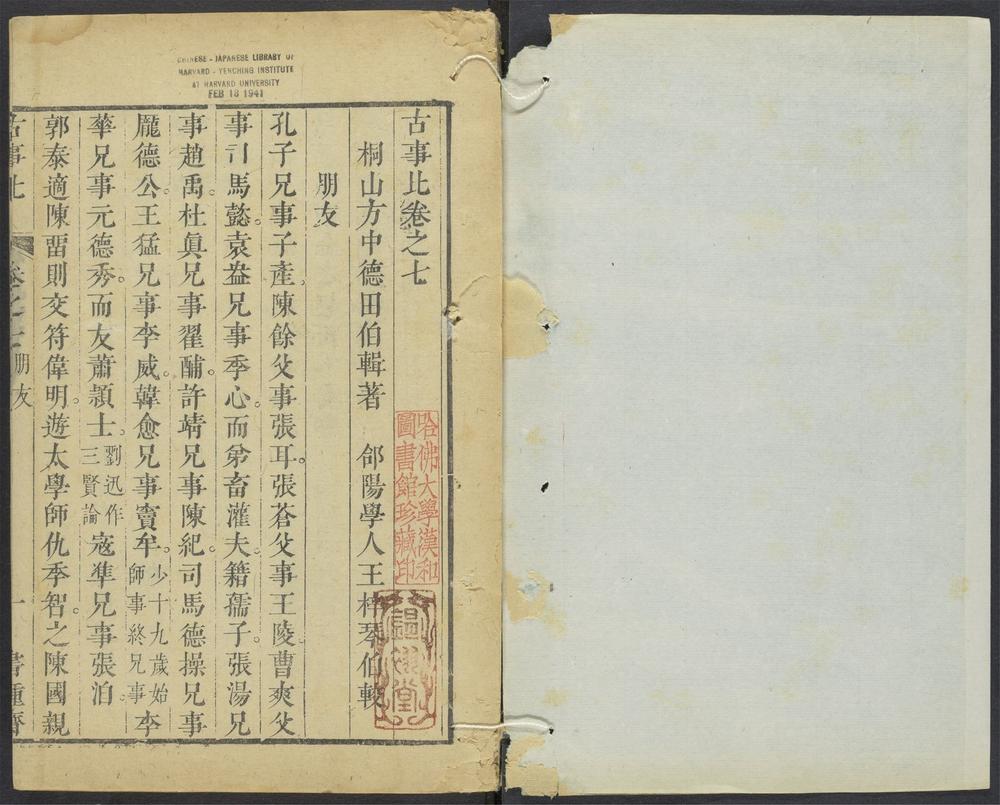 CHINESE - JAPANESE LIBRARY OF
HARVARD - YENCHING INSTITUTE
AT HARVARD UNIVERSITY
FEB 18 1941
古事比卷之七
桐山方中德田伯輯著 郃陽學人王梓琴伯較
朋友
孔子兄事子產陳餘父事張耳張蒼父事王陵曹爽父
事司馬懿袁盎兄事季心而弟畜灌夫籍孺子張湯兄
事趙禹杜眞兄事翟酺許靖兄事陳紀司馬德操兄事
龐德公王猛兄事李威韓愈兄事竇牟少十九歲始師事終兄事李
華兄事元德秀而友蕭頴士劉迅作三賢論寇準兄事張洎
郭泰適陳畱則交符偉明遊太學師仇季智之陳國親
古事比 卷之七 朋友 一 書種齋
哈佛大學漢和圖書館珍藏印